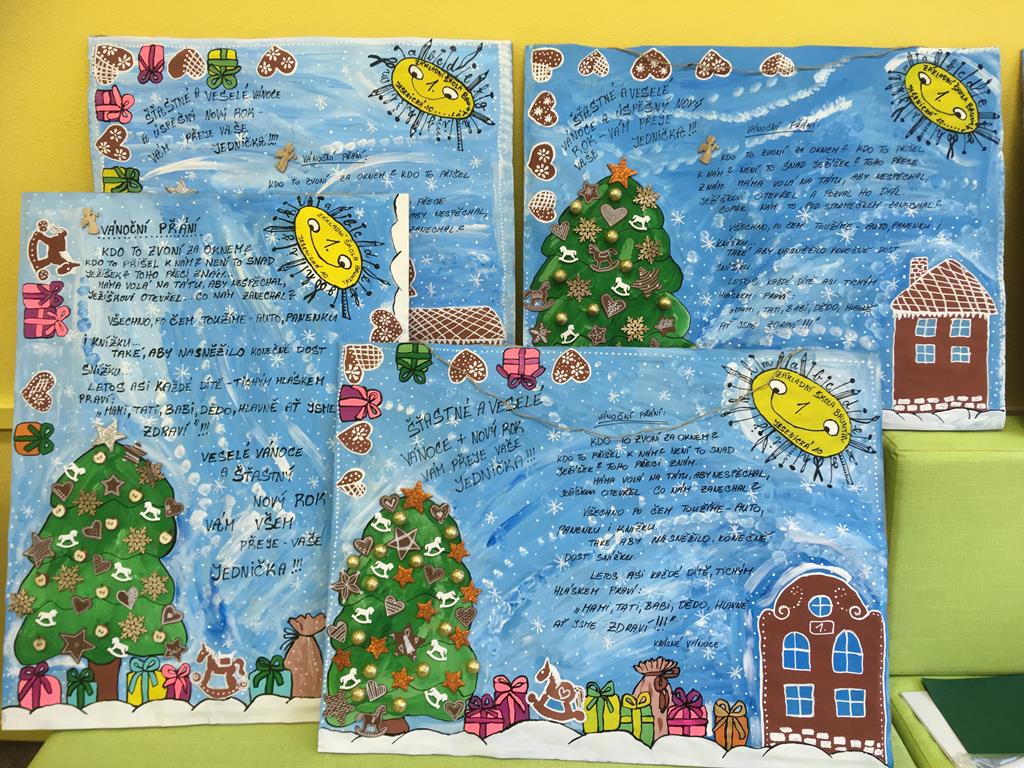 ŠŤASTNÉ A VESELÉ VÁNOCE
A ÚSPĚŠNÝ NOVÝ ROK -
VÁM PŘEJE VAŠE
JEDNIČKA!!!!
1.
VÁNOČNÍ PŘÁNÍ:
KDO TO ZVONÍ ZA OKNEM? KDO TO PŘIŠEL
ABY NESPĚCHAL,
ZANECHAL?
ŠŤASTNÉ A VESELÉ
VÁNOCE A ÚSPĚŠNÝ NOVÝ
ROK - VÁM PŘEJE
VAŠE JEDNIČKA!!!
ZÁKLADNÍ ŠKOLA BRUNTÁL
1.
JESENICKÁ 10
VÁNOČNÍ PŘÁNÍ:
KDO TO ZVONÍ ZA OKNEM? KDO TO PŘIŠEL
K NÁM? NENÍ TO SNAD JEŽÍŠEK? TOHO PŘECE
ZNÁM. MÁMA VOLÁ NA TÁTU, ABY NESPĚCHAL,
JEŽÍŠKOVI OTEVŘEL A POZVAL HO DÁL.
COPAK NÁM TO POD STROMEČKEM ZANECHAL?
VŠECHNO, PO ČEM TOUŽÍME - AUTO, PANENKU I
KNÍŽKU...
TAKÉ ABY NASNĚŽILO KONEČNĚ DOST
SNÍŽKU
LETOS, KAŽDÉ DÍTĚ ASI TICHÝM
HLÁSKEM PRAVÍ:
"MAMI, TATI, BABI, DĚDO, HLAVNĚ
AŤ JSME ZDRAVÍ"!!!
VÁNOČNÍ PŘÁNÍ
KDO TO ZVONÍ ZA OKNEM?
KDO TO PŘIŠEL K NÁM? NENÍ TO SNAD
JEŽÍŠEK? TOHO PŘECI ZNÁM...
MÁMA VOLÁ NA TÁTU, ABY NESPĚCHAL,
JEŽÍŠKOVI OTEVŘEL... CO NÁM ZANECHAL?
VŠECHNO, PO ČEM TOUŽÍME - AUTO, PANENKU
I KNÍŽKU...
TAKÉ, ABY NASNĚŽILO KONEČNĚ DOST
SNÍŽKU...
LETOS ASI KAŽDÉ DÍTĚ - TICHÝM HLÁSKEM
PRAVÍ:
"MAMI, TATI, BABI, DĚDO, HLAVNĚ AŤ JSME
ZDRAVÍ"!!!
VESELÉ VÁNOCE
A ŠŤASTNÝ
NOVÝ ROK
VÁM VŠEM
PŘEJE - VAŠE
JEDNIČKA!!!
ZÁKLADNÍ ŠKOLA BRUNTÁL
1.
JESENICKÁ 10
ŠŤASTNÉ A VESELÉ
VÁNOCE + NOVÝ ROK
VÁM PŘEJE VAŠE
JEDNIČKA!!!
ZÁKLADNÍ ŠKOLA BRUNTÁL
1.
JESENICKÁ 10
VÁNOČNÍ PŘÁNÍ:
KDO TO ZVONÍ ZA OKNEM?
KDO TO PŘIŠEL K NÁM? NENÍ TO SNAD
JEŽÍŠEK? TOHO PŘECI ZNÁM.
MÁMA VOLÁ NA TÁTU, ABY NESPĚCHAL,
JEŽÍŠKOVI OTEVŘEL. CO NÁM ZANECHAL?
VŠECHNO PO ČEM TOUŽÍME - AUTO,
PANENKU I KNÍŽKU
TAKÉ ABY NASNĚŽILO, KONEČNĚ
DOST SNÍŽKU.
LETOS ASI KAŽDÉ DÍTĚ, TICHÝM
HLÁSKEM PRAVÍ:
"MAMI, TATI, BABI, DĚDO, HLAVNĚ
AŤ JSME ZDRAVÍ!!!"
KRÁSNÉ VÁNOCE
1.